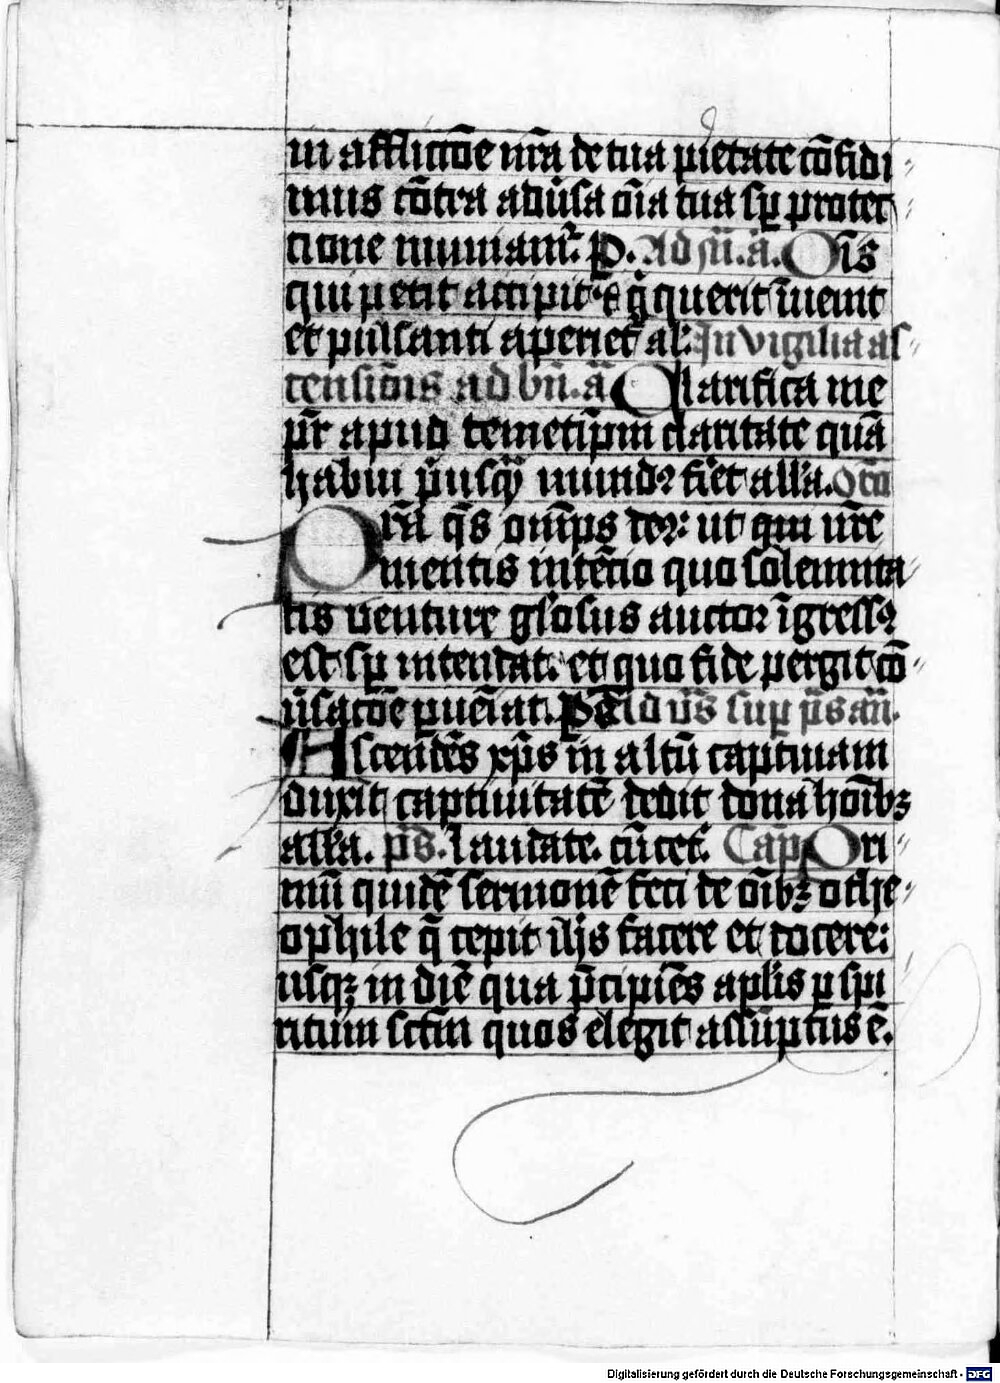 in afflictõe nr̃a de tua pietate cõfidi
mus cõtra adũsa oĩa tua sꝑ protec
tione muniamʳ. P. Ad sñ. ã. Oĩs
qui petit accipit ⁊ q̃ querit ĩuenit
et pulsanti aperietʳ al'. In vigilia as
censiõis ad bñ. ã Clarifica me
pr̃ apud temetip̃m claritate quã
habui p̃usq̃ mundꝰ fiet all'a. Oro
Pr̃a q̄s om̃ps deꝰ: ut qui nr̃e
mentis intẽcio quo solemnita
tis venture gl'osus auctor ĩgressꝰ
est sꝑ intendat. et quo fide pergit cõ
ũsacõe ꝑueĩat. P Ad vs̃ sup p̃s añ.
Ascendẽs xp̃s in altũ captiuam
duxit captiuitatẽ dedit dona hoĩbꝫ
all'a. ps̃. laudate. cũ cet'. Cap̃ Pri
mũ quidẽ sermonẽ feci de oĩbꝫ o the
ophile q̃ cepit ih̃s facere et docere:
usqꝫ in diẽ qua p̃cipiẽs apl'is ꝑ spi
ritum sc̃m quos elegit assũptus ẽ.
Digitalisierung gefördert durch die Deutsche Forschungsgemeinschaft - DFG